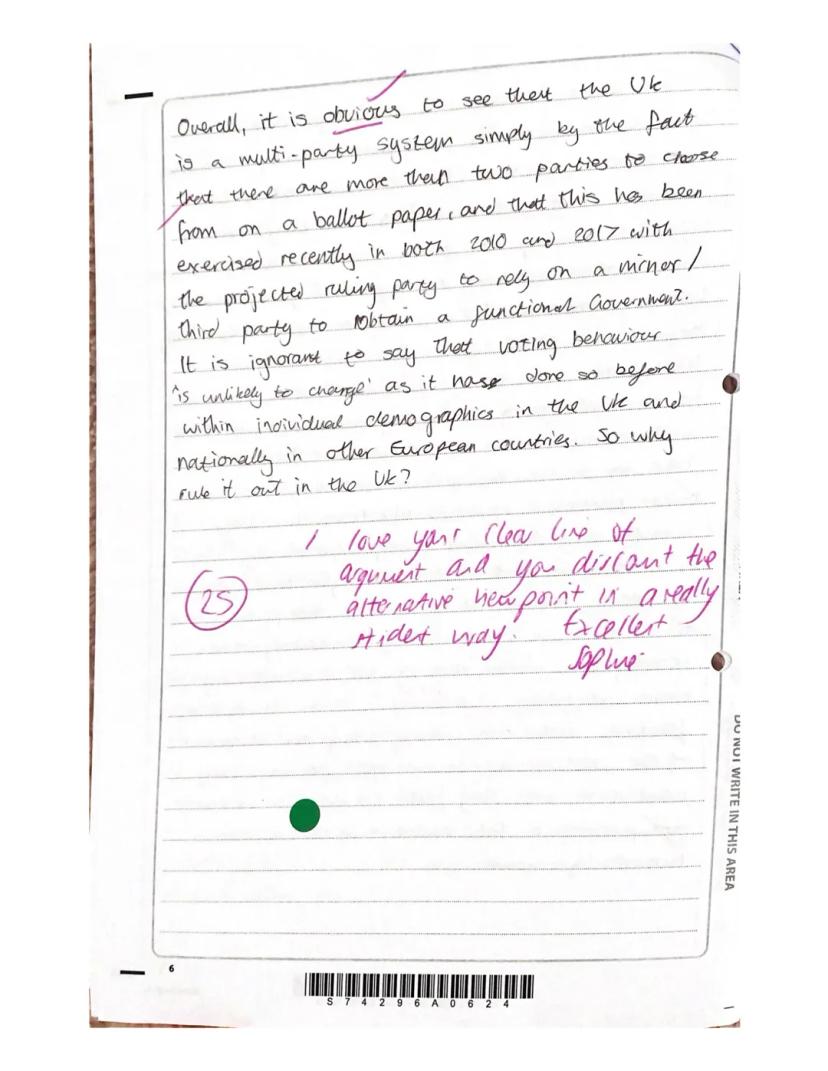 Overall, it is obvious to see that the UK
is a multi-party system simply by the fact
that there are more than two parties to choose
from on a ballot paper, and that this has been
exercised recently in both 2010 and 2017 with
the projected ruling party to rely on a minor/
third party to obtain a functional Government.
It is ignorant to say that voting behaviour
'is unlikely to change' as it has done so before
within individual demographics in the UK and
nationally in other European countries. So why
rule it out in the UK?
I love your clear line of
argument and you discount the
alternative viewpoint in a really
way. Excellent
Sophie.
25
DO NOT WRITE IN THIS AREA
6
S74296A0624